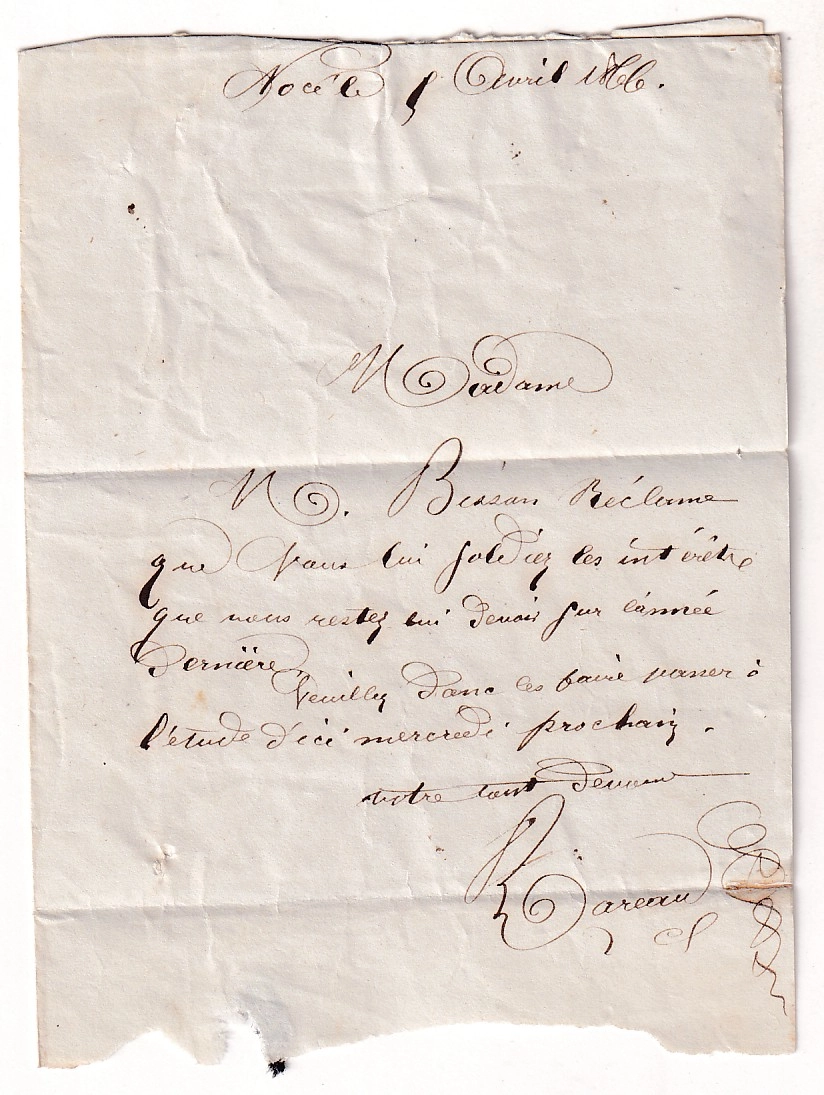 Nocé le Avril 1866.
Madame
M. Bisson Réclame
que vous lui soldiez les intérêts
que vous restez lui devoir sur l'année
Dernière
Veuillez donc les faire passer à
l'étude d'ici mercredi prochain.
votre tout dévoué
Bareau